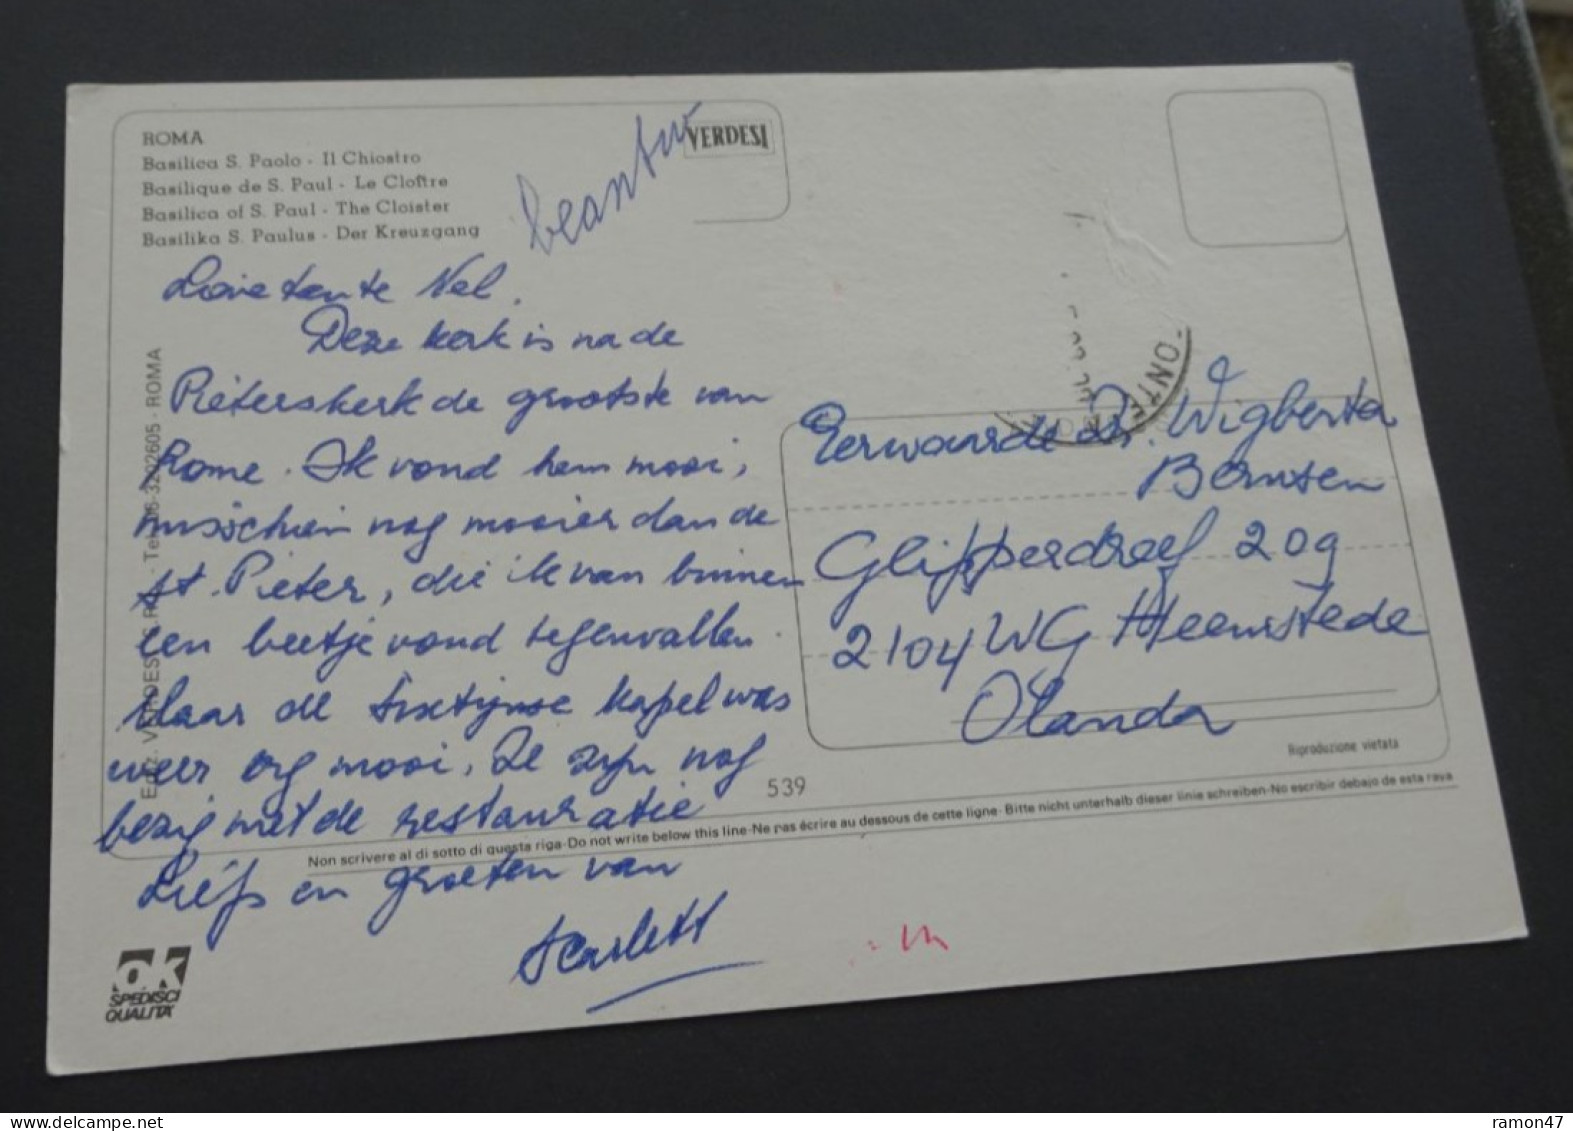 ROMA
Basilica S. Paolo - Il Chiostro
Basilique de S. Paul - Le Cloître
Basilica of S. Paul - The Cloister
Basilika S. Paulus - Der Kreuzgang
VERDESI
Lieve tante Nel.
Deze kerk is na de
Pieterskerk de grootste van
Rome. Ik vond hem mooi,
misschien nog mooier dan de
St. Pieter, die ik van binnen
een beetje vond tegenvallen.
Maar de Sixtijnse kapel was
weer erg mooi. Ze zijn nog
bezig met de restauratie
Liefs en groeten van
Scarlett
Eerwaarde Zr. Wigberta
Bernsen
Glipperdreef 209
2104 WG Heemstede
Olanda
Riproduzione vietata
539
Non scrivere al di sotto di questa riga-Do not write below this line-Ne pas écrire au dessous de cette ligne-Bitte nicht unterhalb dieser linie schreiben-No escribir debajo de esta raya
ok
SPEDISCI
QUALITA'
ROMA
ramon47